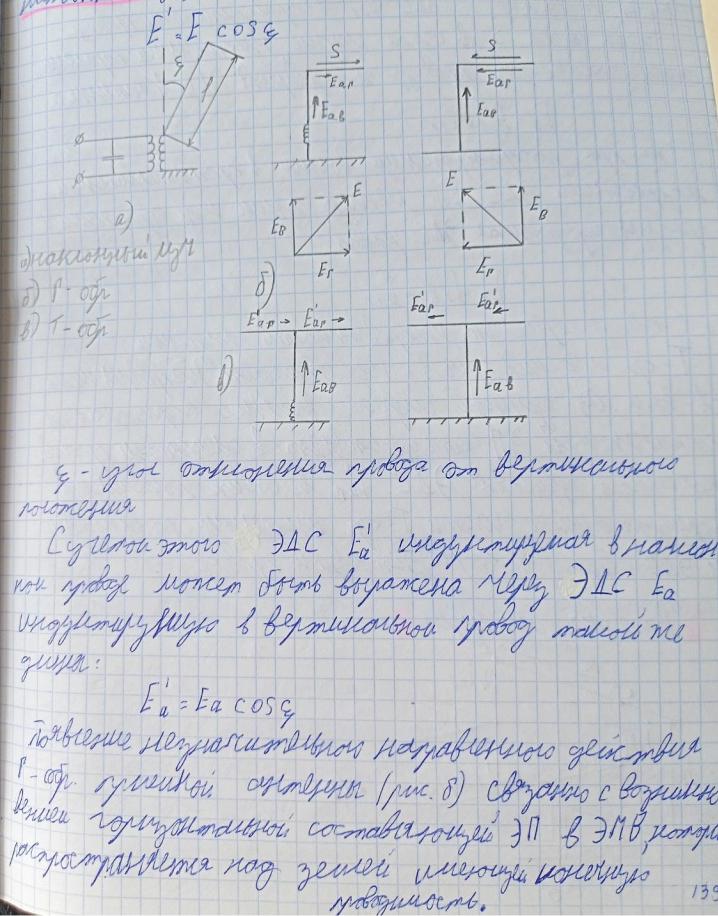 E' = E cos ξ
ξ
l
S
Eаг
Eав
S
Eаг
Eав
E
Eв
Eг
E
Eв
Eг
а)
а) наклонный
б) Г-обр
в) Т-обр
б)
E'аг E'аг
Eав
в)
E'аг E'аг
Eав
ξ - угол отклонения провода от вертикального
положения
С учетом этого ЭДС E'а индуктируемая в наклон
ном проводе может быть выражена через ЭДС Eа
индуктирующую в вертикальной провод такой же
длины:
E'а = Eа cos ξ
Появление незначительного направленного действия
Г-обр. приемной антенны (рис. б) связанно с возникно
вением горизонтальной составляющей ЭП в ЭМВ, котор
распространяется над землей имеющей конечную
проводимость.
139